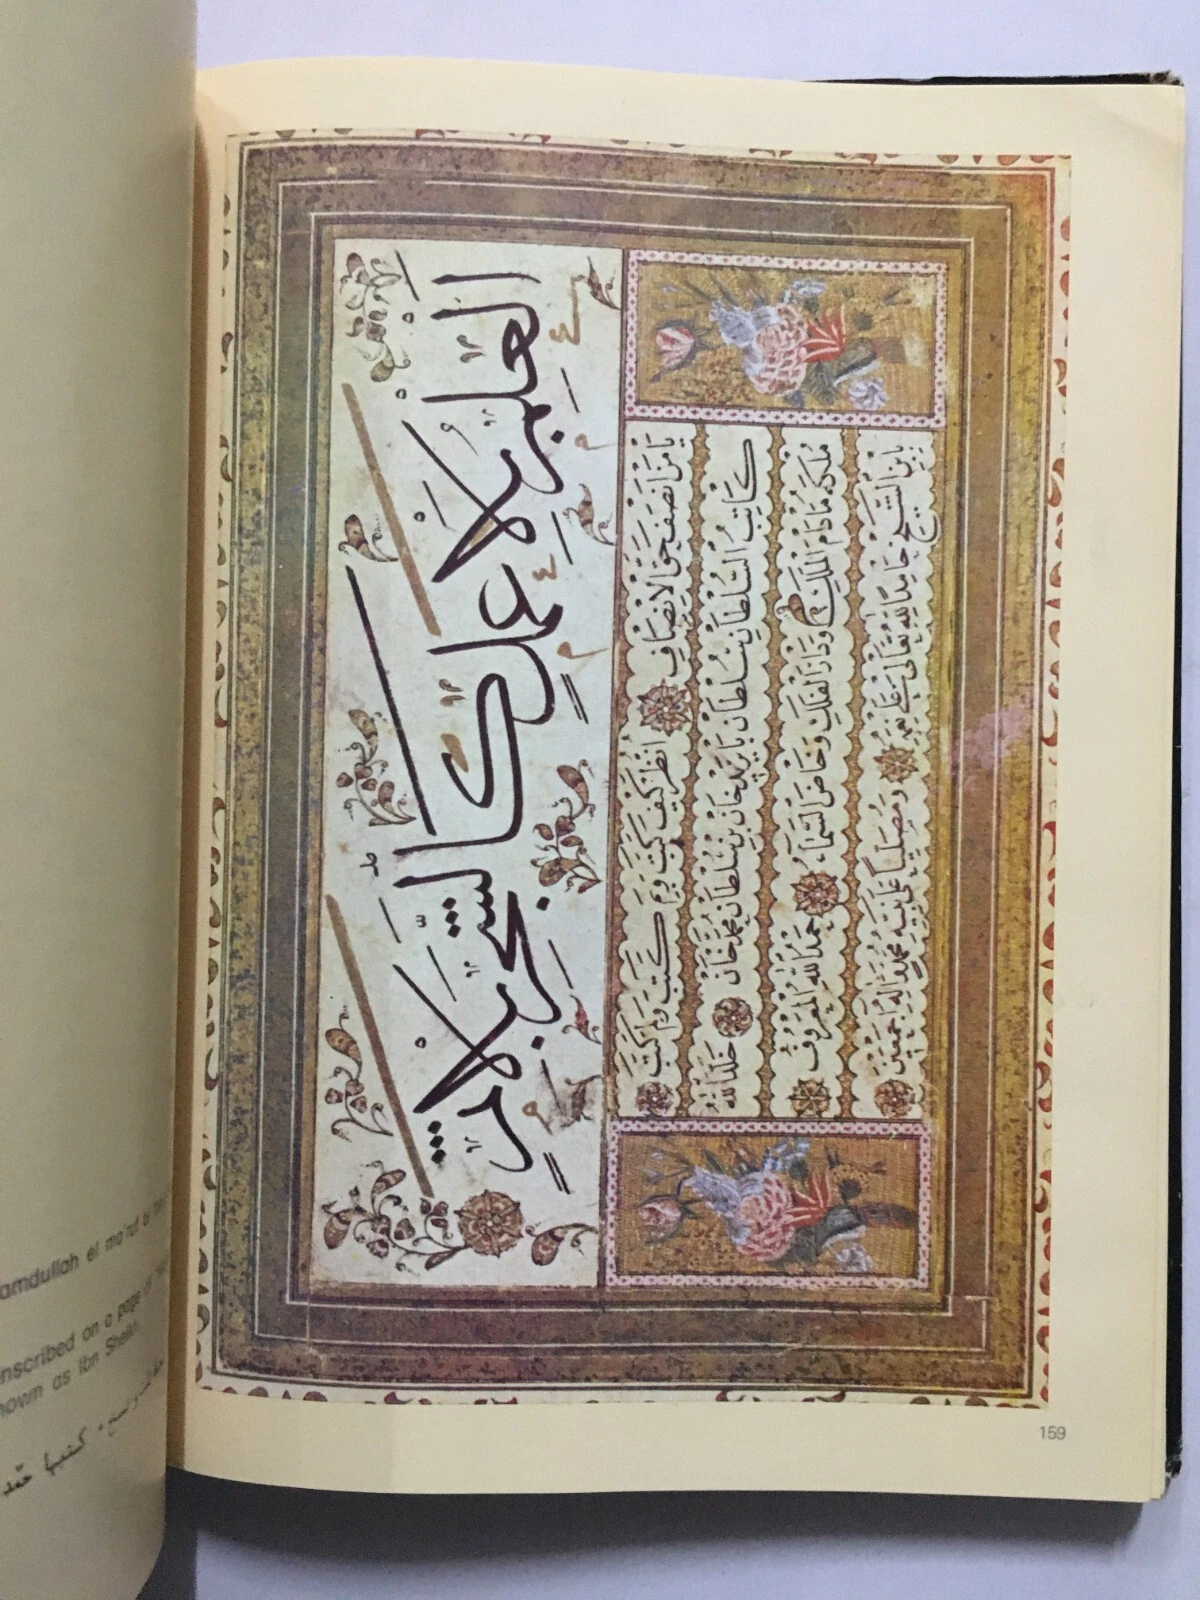 amdullah el ma'ruf bi
nscribed on a page of
nown as Ibn Sheikh.
كتبها حمد
العلم بلا عمل كالشجر بلا ثمر
يا من انصف حق الانصاف انظر كيف كتب وبم كتب ولم كتب
كاتب السلطان بن سلطان بايزيد خان بن سلطان محمد خان خلد الله
ملكه ما دام الملك ودار الفلك السما حمد الله المعروف
بابن الشيخ حامدا لله تعالى على نعمه ومصليا على نبيه محمد واله اجمعين
159